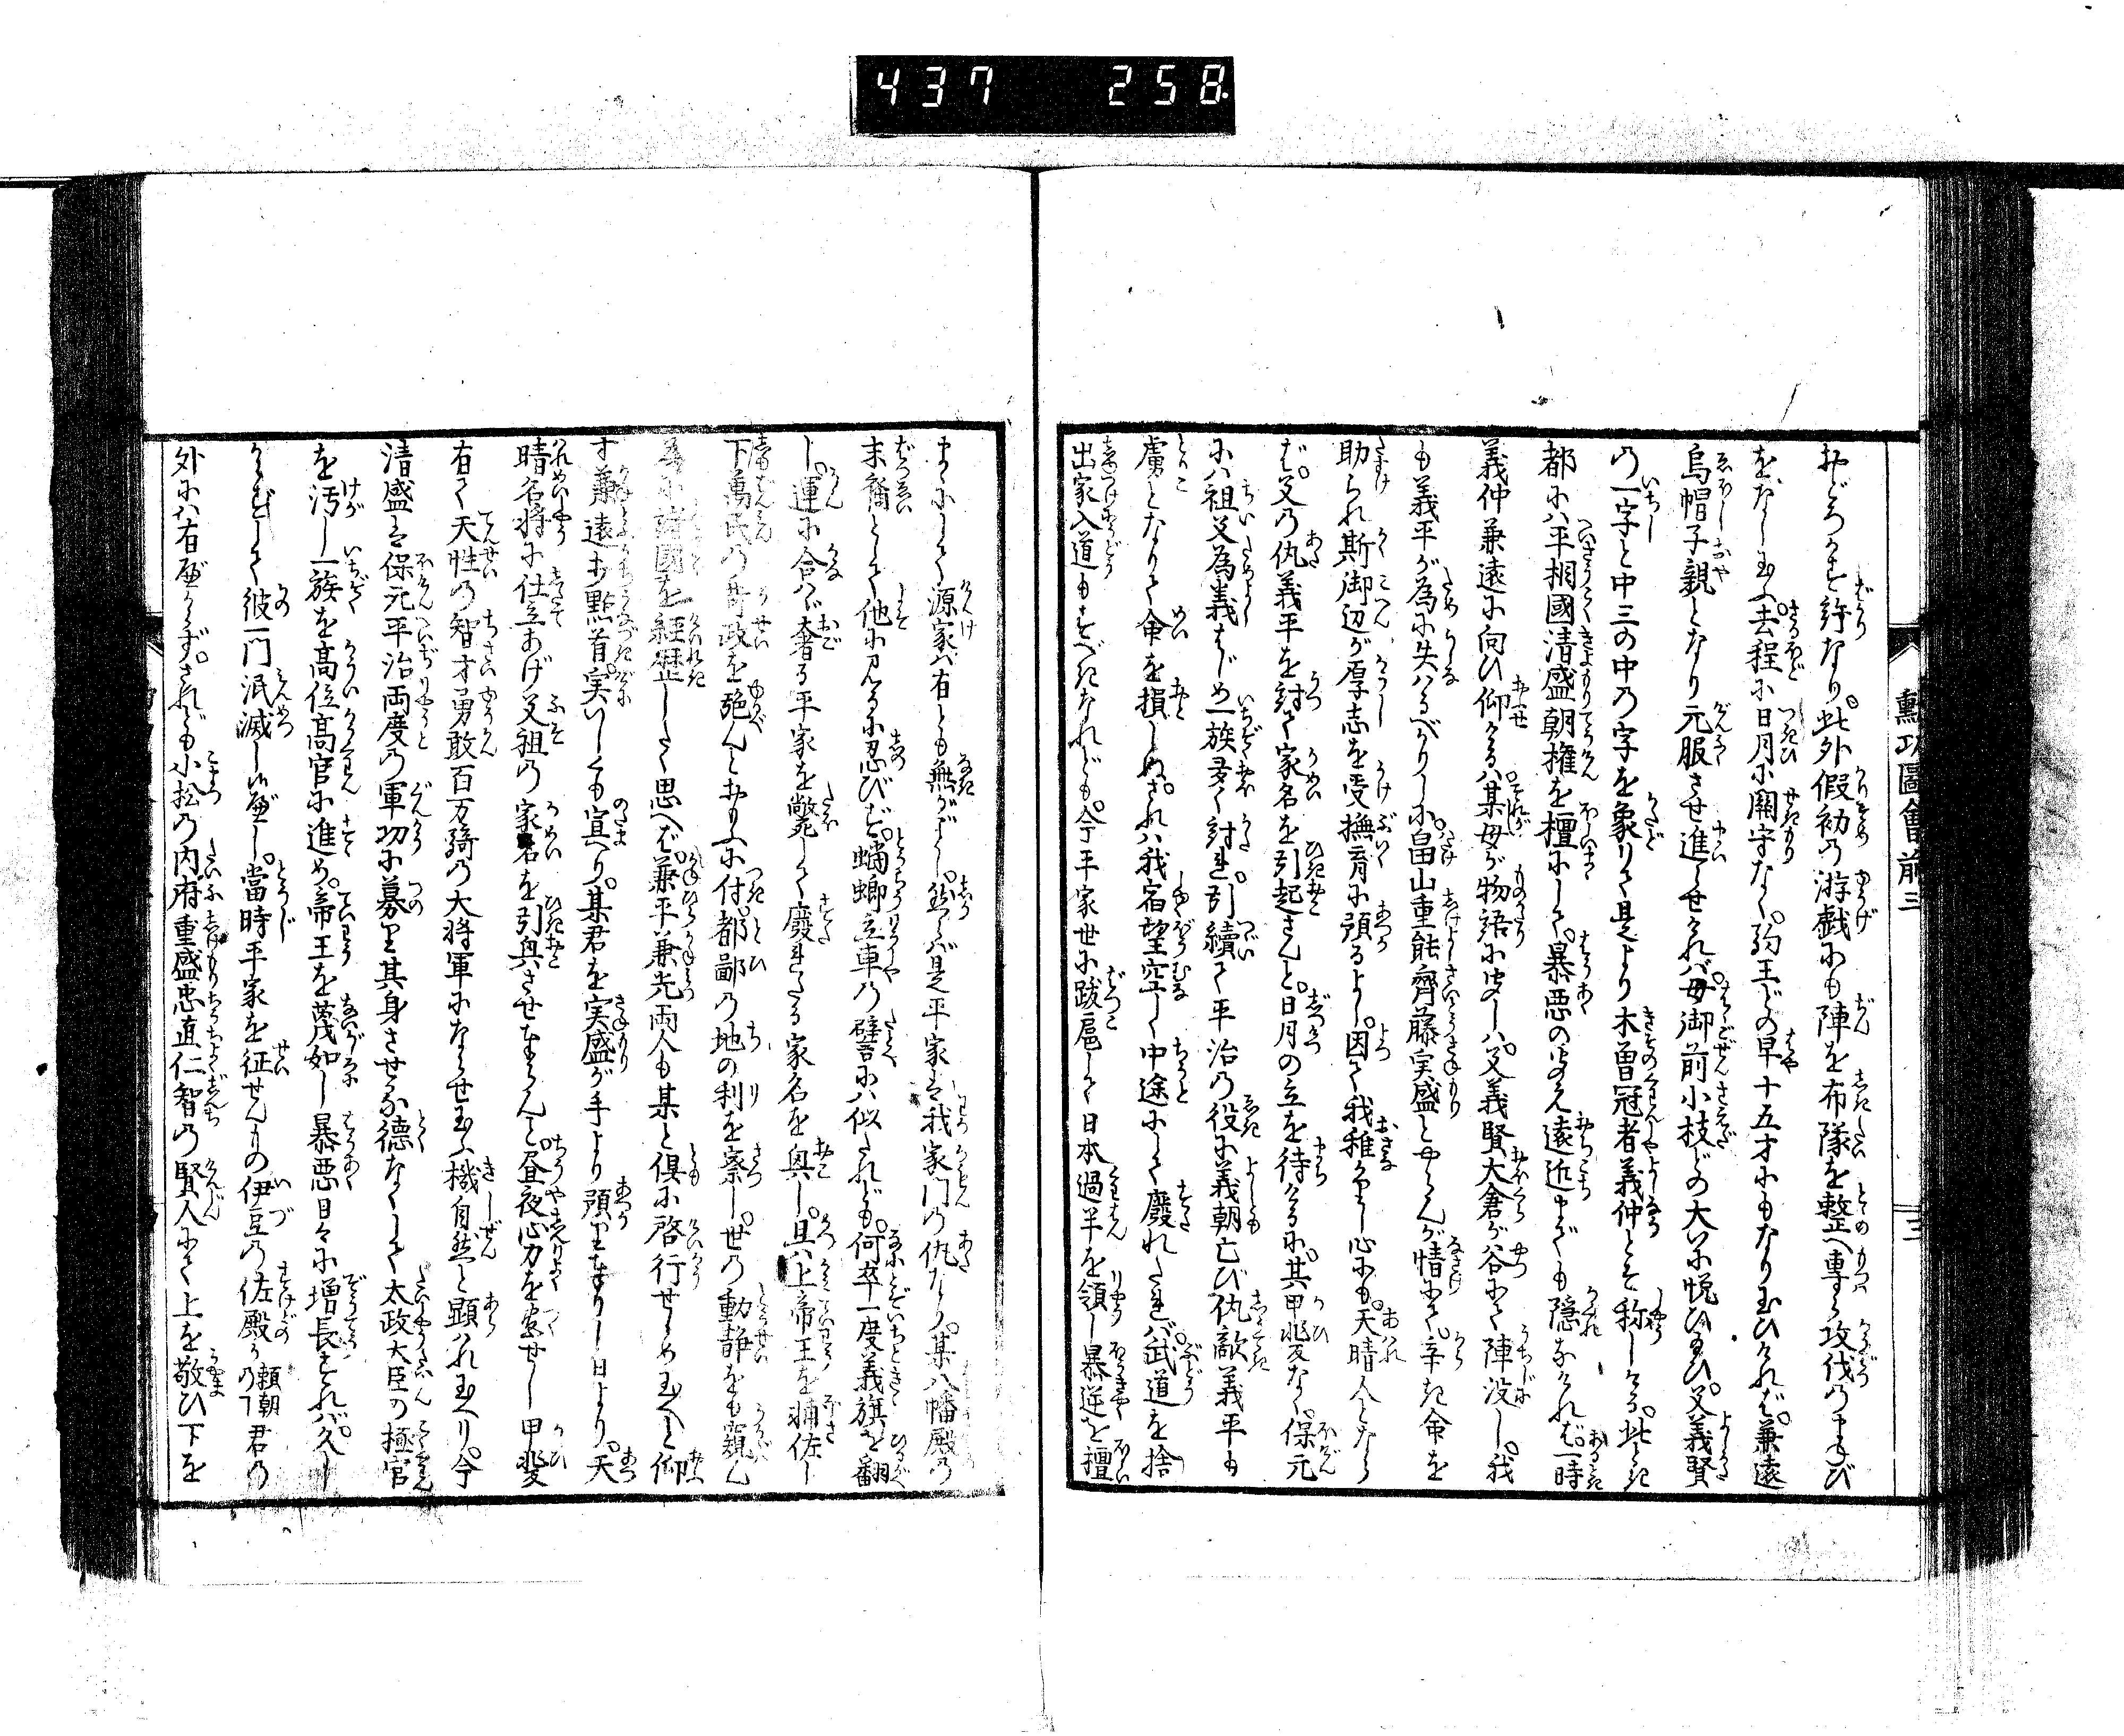 437 258
勲功圖會前三
おどろかす許なり。此外假初の游戯にも陣を布隊を整へ専ら攻伐のまなび
をなし玉ふ。去程に日月に關守なく。駒王どの早十五才にもなり玉ひければ。兼遠
烏帽子親となり元服させ進らせければ。母御前小枝どの大いに悦び玉ひ。又義賢
の一字と中三の中の字を象りて是より木曽冠者義仲とぞ称しける。此とき
都にハ平相國清盛朝權を檀にして。暴悪の聞え遠近までも隠なければ。一時
義仲兼遠に向ひ仰けるハ某母が物語に聞しハ。父義賢大倉が谷にて陣没し。我
も義平が為に失ハるべかりしに。畠山重能齊藤実盛とやらんが情にて。辛き命を
助られ斯御辺が厚志を受撫育に預るよし。因て我稚けなし心にも。天晴人となら
ば。父の仇義平を討て家名を引起さんと。日月の立を待けるに。其甲斐なく。保元
にハ祖父為義はじめ一族多く討れ。引續て平治の役に義朝亡び仇敵義平も
虜となりて命を損しぬ。されハ我宿望空しく中途にして廢れたれバ。武道を捨
出家入道もすべきなれども。今平家世に跋扈して日本過半を領し暴逆を檀
まゝにして源家ハ有とも無がごとし。然らバ是平家ハ我家門の仇なり。某八幡殿の
末裔として他に見るに忍びず。蟷螂立車の譬にハ似たれども。何卒一度義旗を翻
し。運に合ハゞ奢る平家を斃して廢れたる家名を興し。且ハ上帝王を補佐し
下萬民の苛政を弛んとおもふに付。都鄙の地の利を察し。世の動静をも窺ん
為に諸國を経歴したく思へば。兼平兼光両人も某と倶に啓行せしめ玉へと仰
す兼遠打點首。実いしくも宣へり。某君を実盛が手より預りまゐりし日より。天
晴名将に仕立あげ父祖の家名を引興させまゐらんと。昼夜心力を盡せし甲斐
有て天性の智才勇敢百万騎の大将軍にならせ玉ふ機自然と顕ハれ玉へり。今
清盛ハ保元平治両度の軍功に募り其身させる德なくして太政大臣の極官
を汚し一族を高位高官に進め。帝王を蔑如し暴悪日々に増長すれバ。久し
からずして彼一門泯滅し候べし。當時平家を征せんもの伊豆の佐殿頼朝の了君の
外にハ有べからず。されども小松の内府重盛忠直仁智の賢人にて上を敬ひ下を